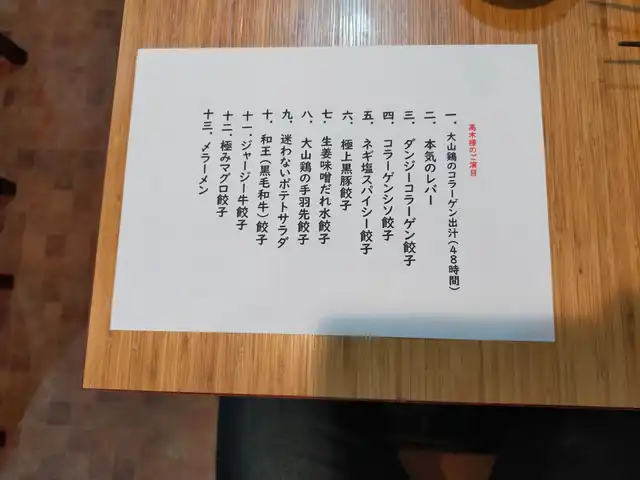 高木様のご演目
一．大山鶏のコラーゲン出汁（４８時間）
二．本気のレバー
三．ダンジーコラーゲン餃子
四．コラーゲンシソ餃子
五．ネギ塩スパイシー餃子
六．極上黒豚餃子
七．生姜味噌だれ水餃子
八．大山鶏の手羽先餃子
九．迷わないポテトサラダ
十．和王（黒毛和牛）餃子
十一．ジャージー牛餃子
十二．極みマグロ餃子
十三．メラーメン